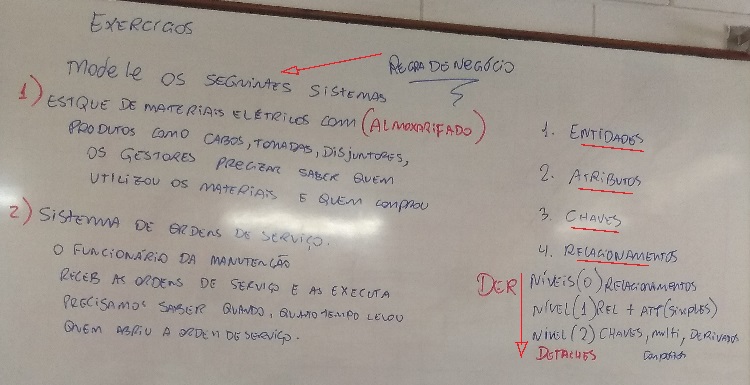 EXERCÍCIOS
MODELE OS SEGUINTES SISTEMAS
REGRA DE NEGÓCIO
1) ESTQUE DE MATERIAIS ELÉTRICOS COM (ALMOXARIFADO)
PRODUTOS COMO CABOS, TOMADAS, DISJUNTORES,
OS GESTORES PRECIZAR SABER QUEM
UTILIZOU OS MATERIAIS E QUEM COMPROU
2) SISTEMA DE ORDENS DE SERVIÇO.
O FUNCIONÁRIO DA MANUTENÇÃO
RECEB AS ORDENS DE SERVIÇO E AS EXECUTA
PRECISAMOS SABER QUANDO, QUANTO TEMPO LEVOU
QUEM ABRIU A ORDEM DE SERVIÇO.
1. ENTIDADES
2. ATRIBUTOS
3. CHAVES
4. RELACIONAMENTOS
DER
NÍVEIS (0) RELACIONAMENTOS
NÍVEL (1) REL + ATT (SIMPLES)
NÍVEL (2) CHAVES, MULTI, DERIVADOS
COMPOSTOS
DETALHES